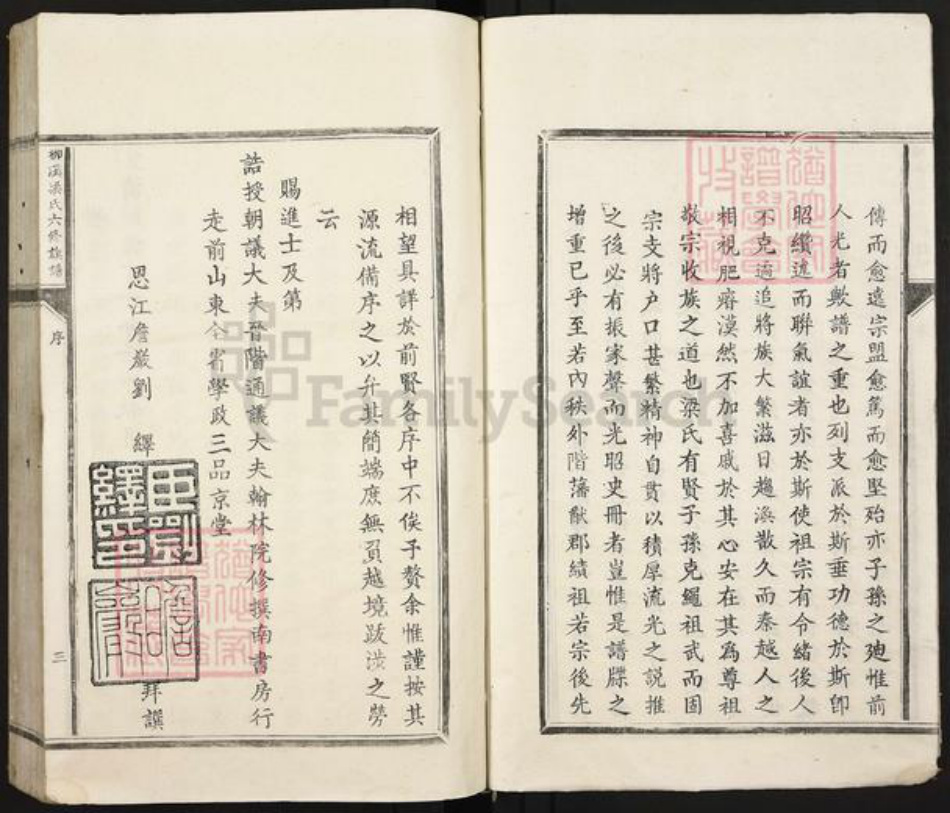 傳而愈遠宗盟愈篤而愈堅殆亦子孫之廸惟前
人光者歟譜之重也列支派於斯垂功德於斯卽
昭纘述而聯氣誼者亦於斯使祖宗有令緒後人
不克遹追將族大繁滋日趨渙散久而秦越人之
相視肥瘠漠然不加喜戚於其心安在其爲尊祖
敬宗收族之道也梁氏有賢子孫克繩祖武而固
宗支將户口甚繁精神自貫以積厚流光之說推
之後必有振家聲而光昭史冊者豈惟是譜牒之
增重已乎至若內秩外階藩猷郡績祖若宗後先
相望具詳於前賢各序中不俟予贅余惟謹按其
源流備序之以弁其簡端庶無負越境跋涉之勞
云
賜進士及第
誥授朝議大夫晉階通議大夫翰林院修撰南書房行
走前山東學政三品京堂
思江詹巖劉繹拜譔
柳溪梁氏六修族譜
序
三
FamilySearch